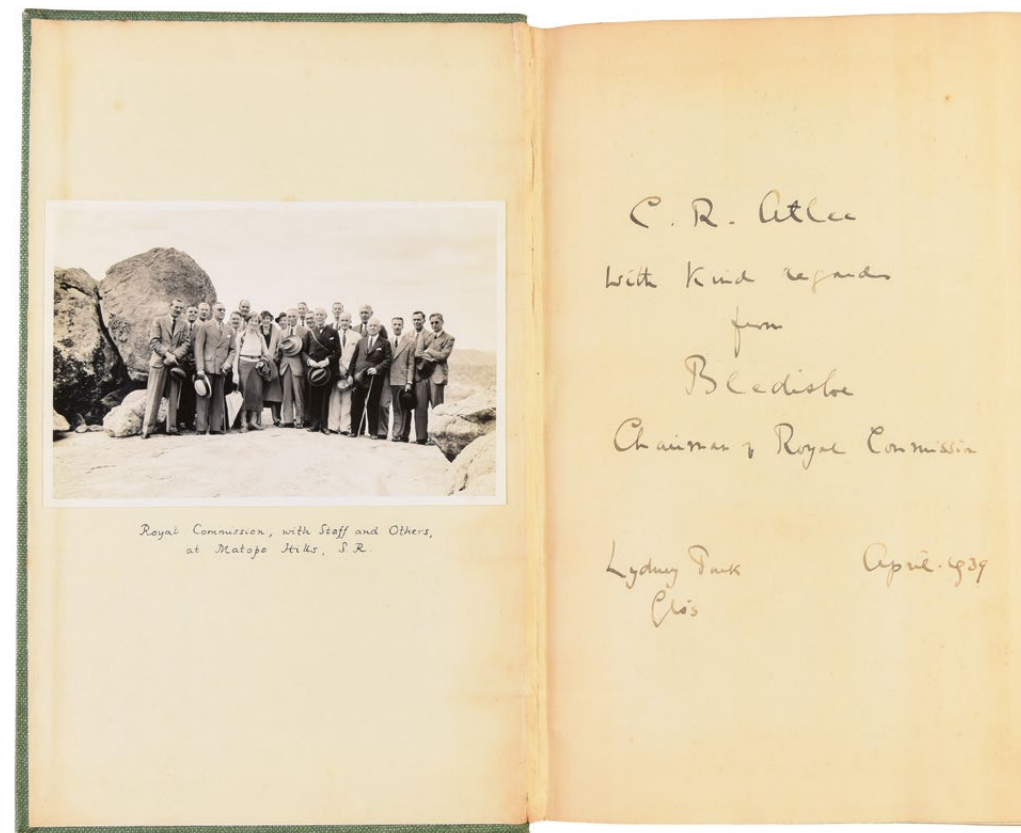 Royal Commission, with Staff and Others,
at Matopo Hills, S.R.
C. R. Atlee
With Kind regards
from
Bledisloe
Chairman of Royal Commission
Lydney Park April. 1939
Glos